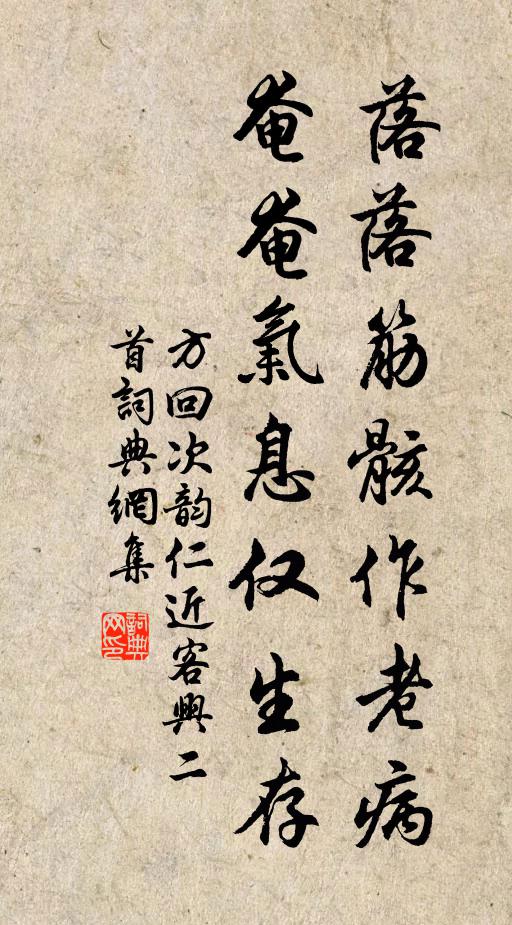 落落筋骸作老病
奄奄氣息仅生存
方回次韵仁近客興二
首詞典網集
詞典网印